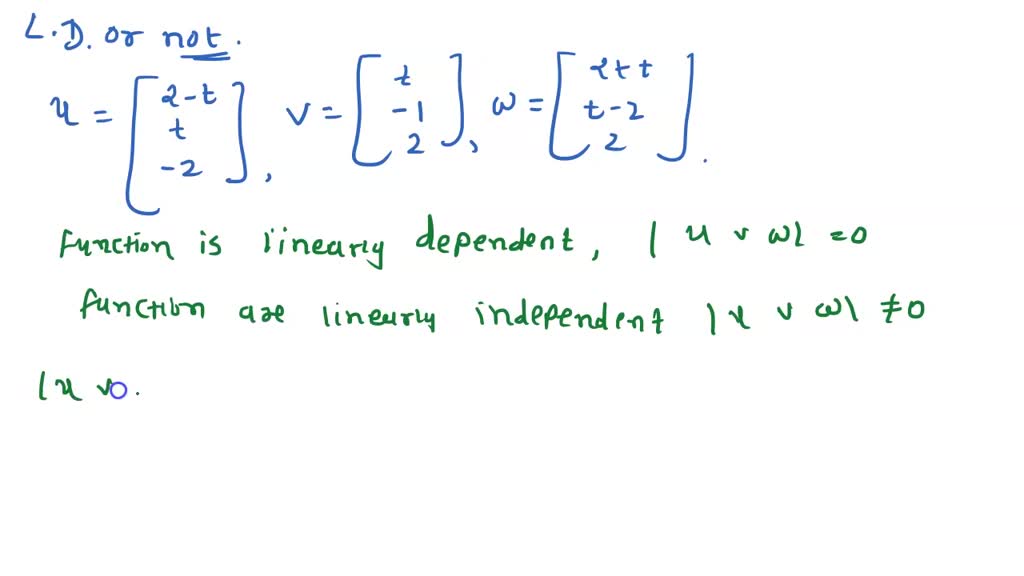 L.D. or not.
u = [2-t t -2], v = [t -1 2], w = [2+t t-2 2].
function is linearly dependent, | u v w| =0
function are linearly independent | u v w| ≠0
| u v